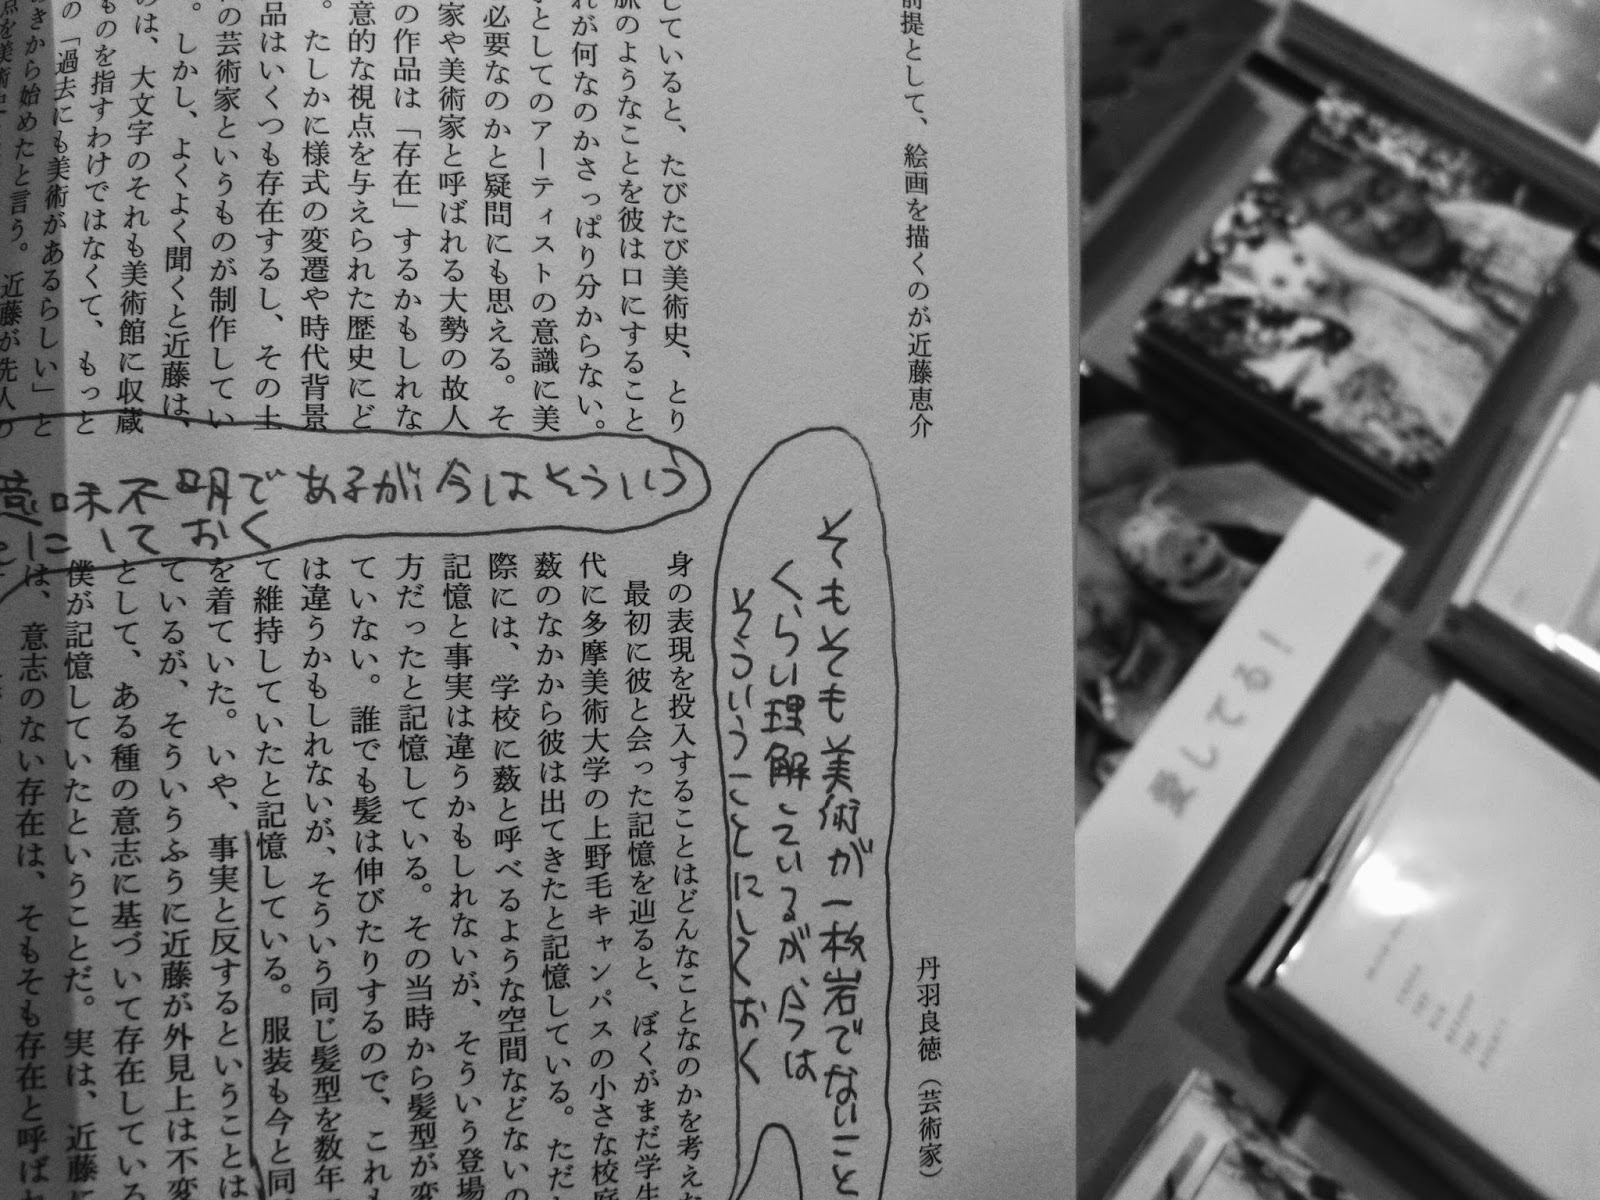 前提として、絵画を描くのが近藤恵介
丹羽良徳（芸術家）
そもそも美術が一枚岩でないこと
くらい理解しているが、今は
そういうことにしておく
していると、たびたび美術史、とり
脈のようなことを彼は口にすること
れが何なのかさっぱり分からない。
としてのアーティストの意識に美
必要なのかと疑問にも思える。そ
家や美術家と呼ばれる大勢の故人
の作品は「存在」するかもしれな
意的な視点を与えられた歴史にど
。たしかに様式の変遷や時代背景
品はいくつも存在するし、その土
の芸術家というものが制作してい
。しかし、よくよく聞くと近藤は、
のは、大文字のそれも美術館に収蔵
ものを指すわけではなくて、もっと
の「過去にも美術があるらしい」と
きから始めたと言う。近藤が先人の
点を美術史
意味不明であるが今はそういう
とにしておく
身の表現を投入することはどんなことなのかを考えな
最初に彼と会った記憶を辿ると、ぼくがまだ学生
代に多摩美術大学の上野毛キャンパスの小さな校庭
薮のなかから彼は出てきたと記憶している。ただ
際には、学校に薮と呼べるような空間などないの
記憶と事実は違うかもしれないが、そういう登場
方だったと記憶している。その当時から髪型が変
ていない。誰でも髪は伸びたりするので、これも
は違うかもしれないが、そういう同じ髪型を数年
て維持していたと記憶している。服装も今と同
を着ていた。いや、事実と反するということは
ているが、そういうふうに近藤が外見上は不変
として、ある種の意志に基づいて存在している
僕が記憶していたということだ。実は、近藤に
は、意志のない存在は、そもそも存在と呼ばれ
愛してる！